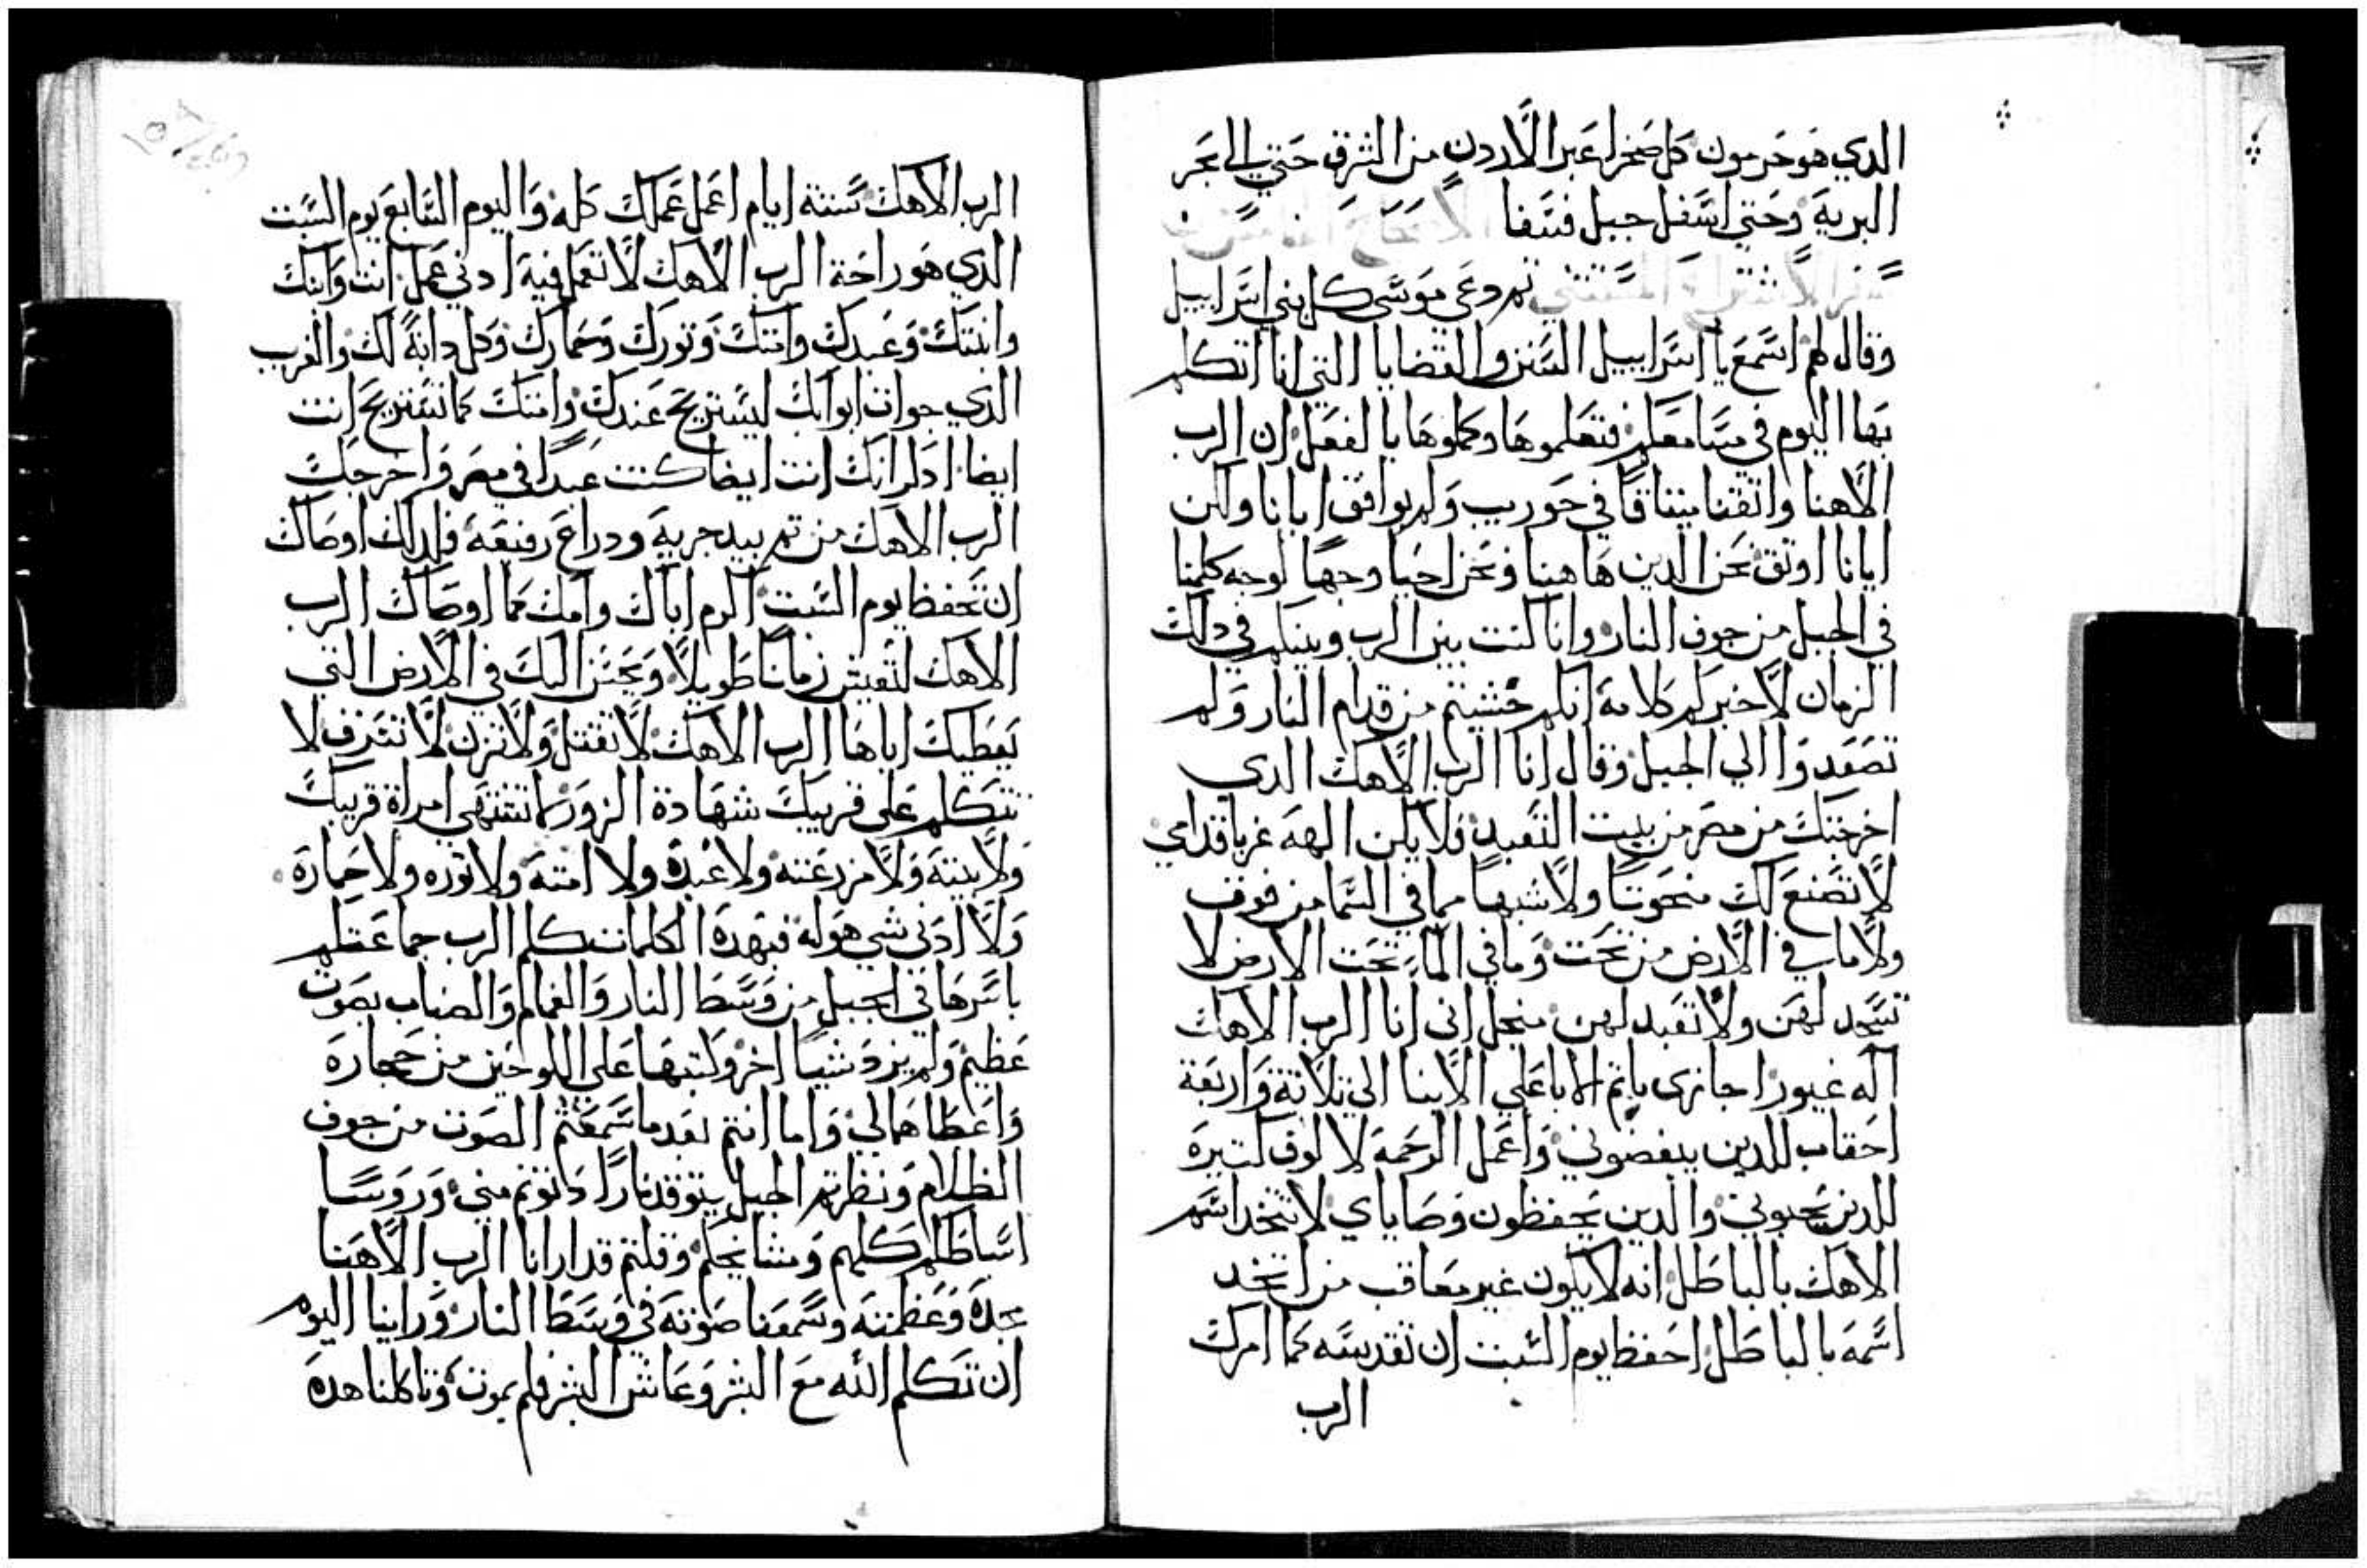 الدي هو حرمون كل صحرا عبر الاردن من الشرق حتي الي بحر
البرية وحتي اسفل جبل فسفا الاصحاح الخامس
سفر الاستثنا ثم دعي موسى كل بني اسراييل
وقال لهم اسمع يا اسراييل السنن والقضايا التي انا اتكلم
بها اليوم في مسامعكم فتعلموها وكملوها بالفعل ان الرب
الاهنا واثقنا ميثاقا في حوريب ولم يواثق ابانا ولكن
ايانا اوثق نحن الدين هاهنا ونحن احيا وجها لوجه كلمنا
في الجبل من جوف النار وانا كنت بين الرب وبينكم في دلك
الزمان لاخبركم كلامه انكم خشيتم من قدام النار ولم
تصعدوا الي الجبل وقال انا الرب الاهك الدي
اخرجتك من مصر من بيت التعبد فلا يكن الهة غربا قدامي
لا تصنع لك منحوتا ولا شبها مما في السما من فوق
ولا ما في الارض من تحت وما في الما تحت الارض لا
تسجد لهن ولا تعبد لهن منجل انى انا الرب الاهك
اله غيور اجازى باثم الابا علي الابنا الي ثلاثة واربعة
احقاب للدين يبغضوني واعمل الرحمة لالوف كثيرة
للدين يحبوني والدين يحفظون وصاياي لا تتخد اسم
الاهك بالباطل انه لا يكون غير معاقب من اتخد
اسمه بالباطل احفظ يوم السبت ان تقدسه كما امرك
الرب
الرب الاهك ستة ايام اعمل عملك كله واليوم السابع يوم السبت
الدي هو راحة الرب الاهك لا تعمل فيه ادني عمل انت وابنك
وابنتك وعبدك وامتك وثورك وحمارك وكل دابة لك والغريب
الدي جواف ابوابك ليستريح عبدك وامتك كما تستريح انت
ايضا ادكر انك انت ايضا كنت عبدا في مصر واخرجك
الرب الاهك من ثم بيد جرية ودراع رفيعة فلدلك اوصاك
ان تحفظ يوم السبت اكرم اباك وامك كما اوصاك الرب
الاهك لتعيش زمانا طويلا ويحسن اليك في الارض التي
يعطيك اياها الرب الاهك لا تقتل ولا تزن لا تسرق لا
تتكلم على قريبك شهادة الزور لا تشتهي امراة قريبك
ولا بيته ولا مزرعته ولا عبده ولا امته ولا ثوره ولا حماره
ولا ادنى شي هو له فبهده الكلمات تكلم الرب جماعتكم
باسرها في الجبل من وسط النار والغمام والضباب بصوت
عظيم ولم يزد شيا اخر وكتبها علي اللوحين من حجارة
واعطاهما لي واما انتم بعد ما سمعتم الصوت من جوف
الظلام ونظرتم الجبل يتوقد نارا دنوتم مني وروسا
اسباطكم كلهم ومشايخكم وقلتم قد ارانا الرب الاهنا
مجده وعظمته وسمعنا صوته في وسط النار وراينا اليوم
ان تكلم الله مع البشر وعاش البشر فلم يموت وتاكلنا هده